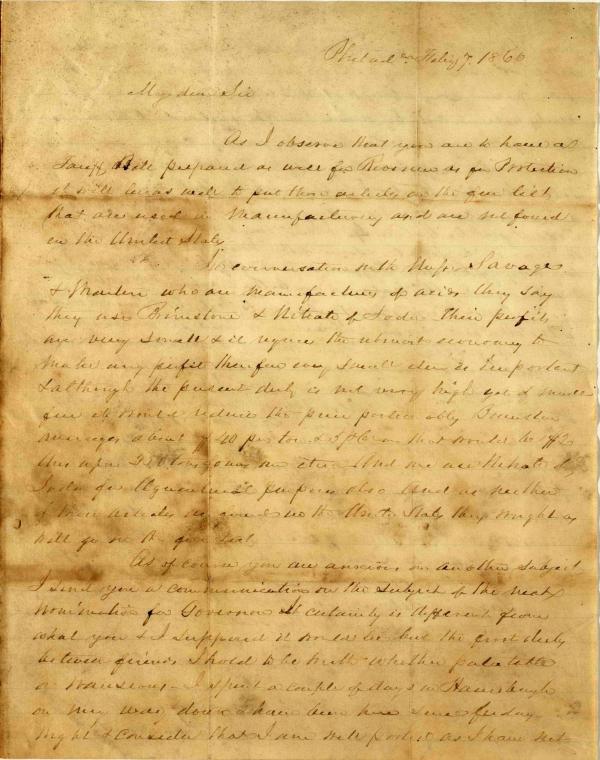 Philad. Feby 7. 1860
My dear Sir
As I observe that you are to have a
Tariff Bill prepared as well for Revenue as for Protection
it will be as well to put those articles on the free list
that are used in Manufacturing and are not found
in the United States
In conversation with Messrs Savage
& Martin who are Manufacturers of acids they say
they use Brimstone & Nitrate of Soda their profits
are very small & it requires the utmost economy to
make any profit therefore every small item is important
& although the present duty is not very high yet if made
free it would reduce the price Brimstone
averages about $40 per ton & 5 pct on that would be $2
this upon tons yearly an item And we use Nitrate of
Soda for Agricultural purposes also And as neither
of these articles are found in the United States they might as
well go on the free list
As of course you are anxious on another subject
I send you a communication on the subject of the next
nomination for Governor It certainly is different from
what you & I supposed it would be but the first duty
between friends I hold to be truth whether palatable
or I spent a couple of days in Harrisburgh
on my way down & have been here since friday
night & consider that I am well posted as I have not